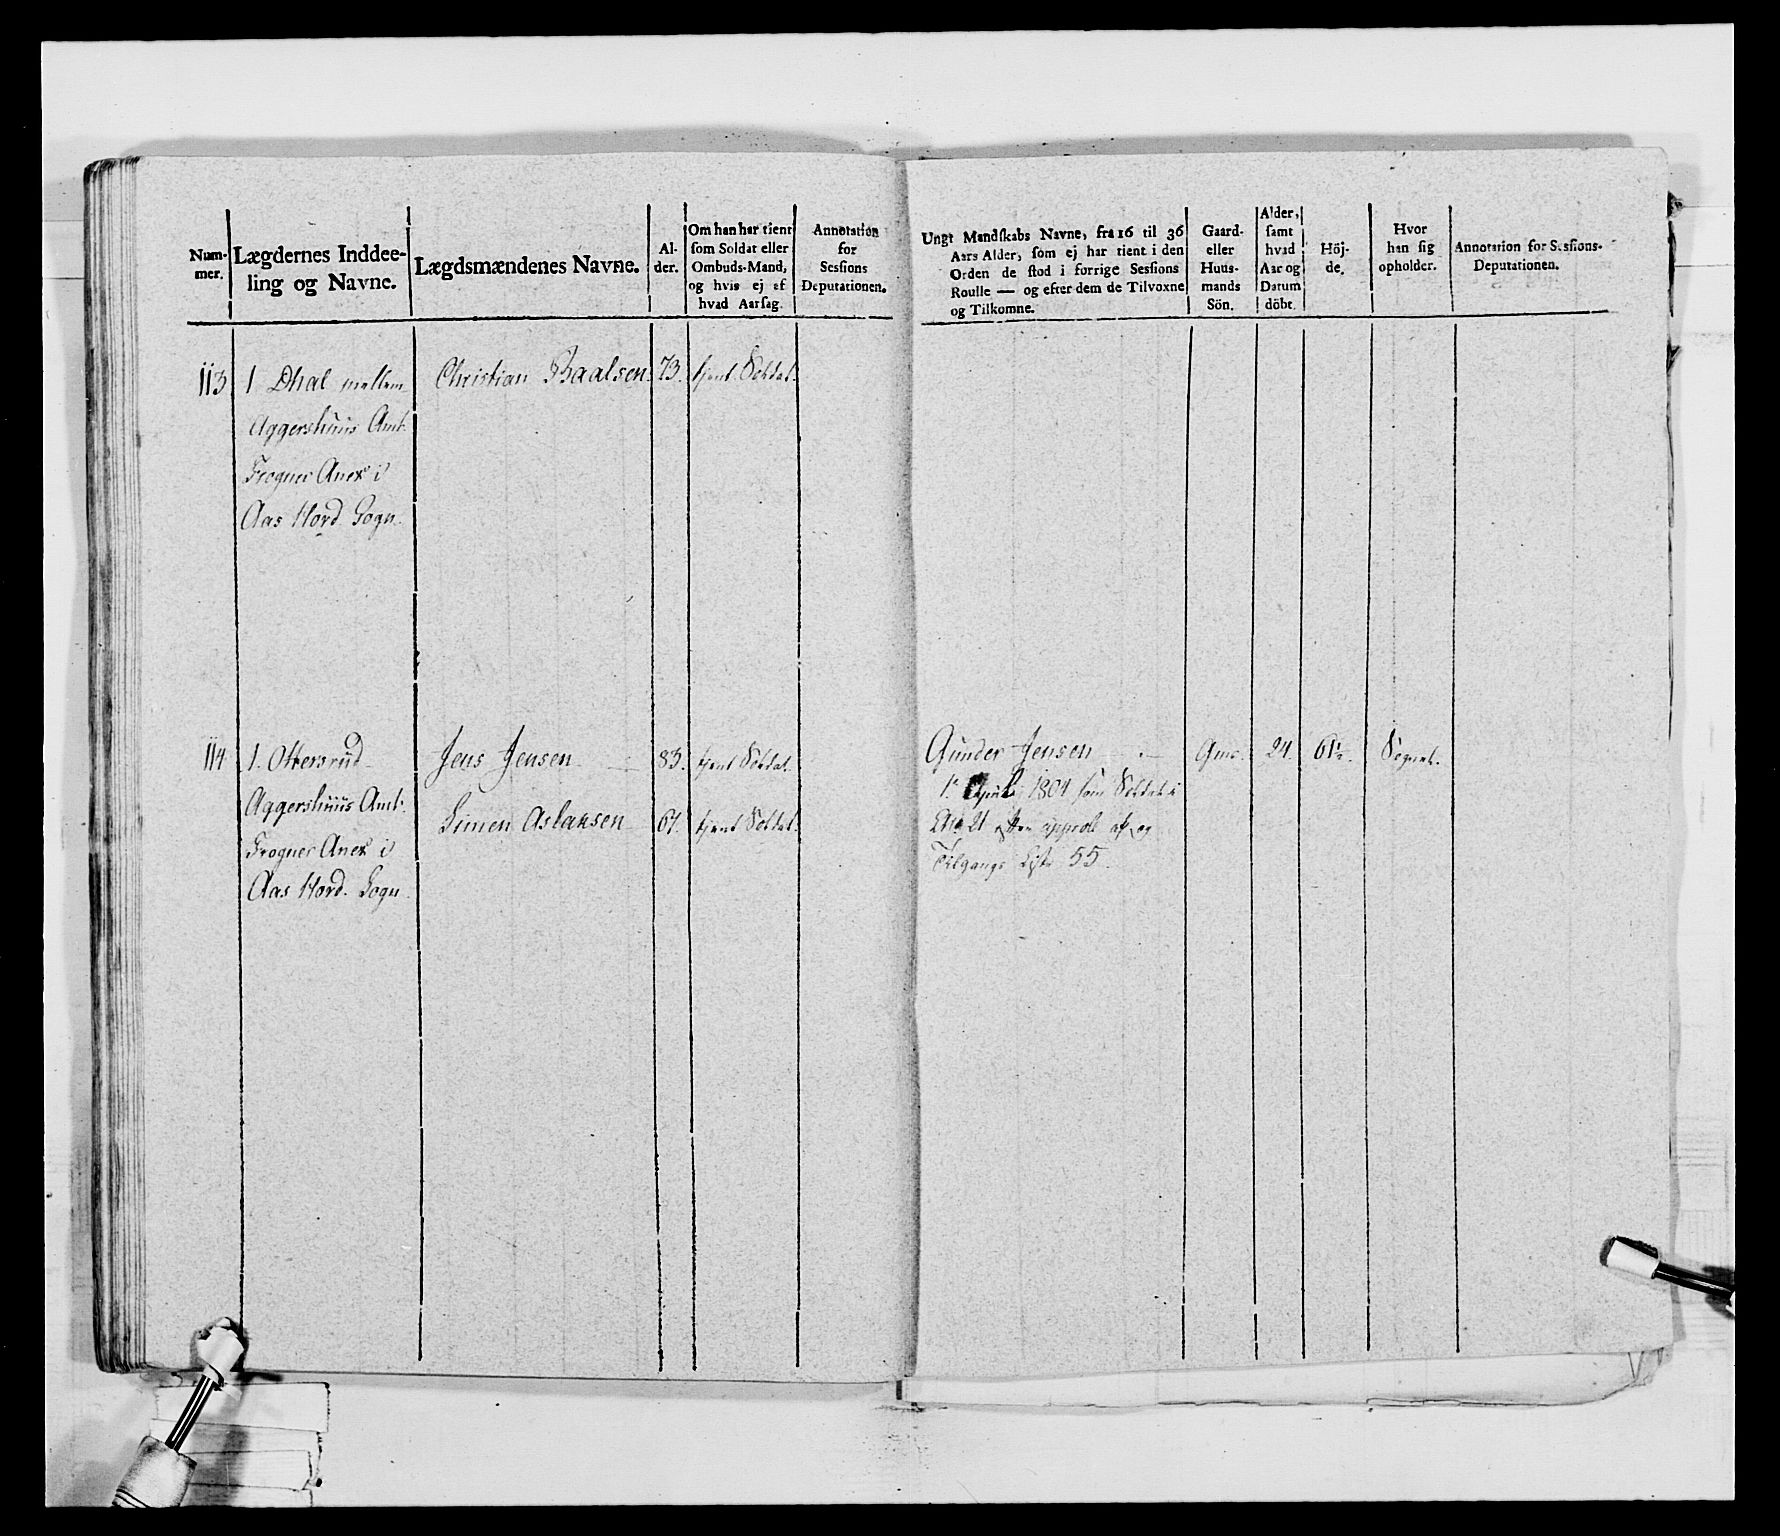 Num-
mer.
Lægdernes Inddee-
ling og Navne.
Lægdsmændenes Navne.
Al-
der.
Om han har tient
som Soldat eller
Ombuds-Mand,
og hvis ej af
hvad Aarsag.
Annotation
for
Sessions
Deputationen.
113
1 Dhal mellem
Aggershuus Amt.
Frogner Anex i
Aas Hord. Sogn
Christian Baalsen
73.
tjent Soldat.
114
1. Ottersrüd
Aggershuus Amt.
Frogner Anex i
Aas Hord. Sogn
Jens Jensen
83.
tjent Soldat.
Simen Aslaksen
67.
tjent Soldat.
Ungt Mandskabs Navne, fra 16 til 36
Aars Alder, som ej har tient i den
Orden de stod i forrige Sessions
Roulle — og efter dem de Tilvoxne
og Tilkomne.
Gaard-
eller
Huus-
mands
Sön.
Alder,
samt
hvad
Aar og
Datum
döbt.
Höj-
de.
Hvor
han sig
opholder.
Annotation for Sessions-
Deputationen.
Gunder Jensen
Gms.
24.
61½.
Sognet.
1804 som Soldat i
af og
Tilgangs Liste 55.